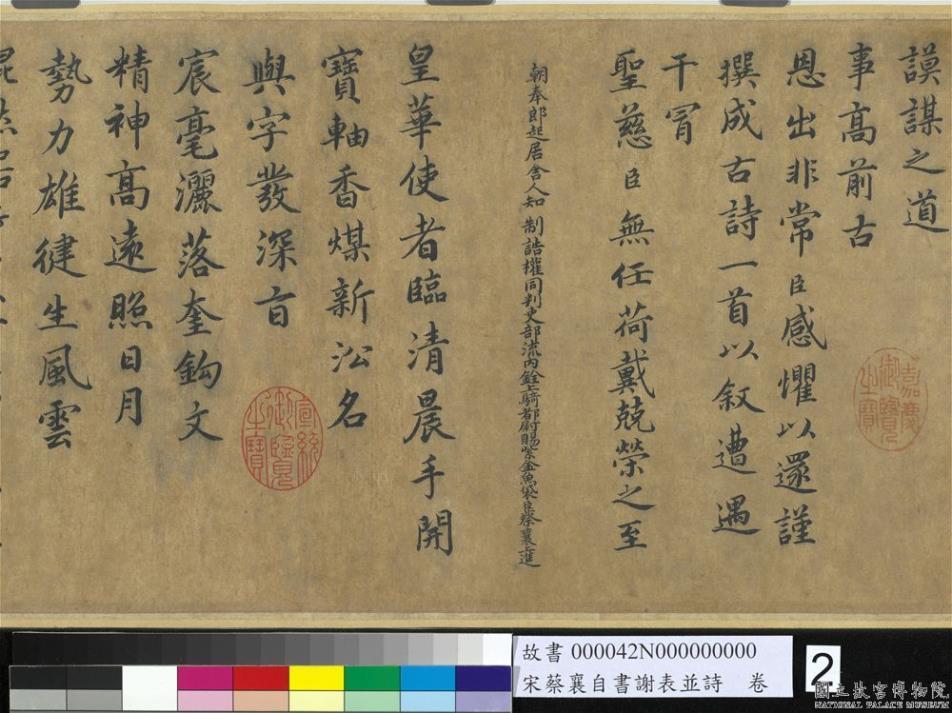 謨謀之道
事高前古
恩出非常臣感懼以還謹
撰成古詩一首以叙遭遇
干冒
聖慈臣無任荷戴兢榮之至
朝奉郎起居舍人知制誥權同判吏部流內銓上騎都尉賜紫金魚袋臣蔡襄上進
皇華使者臨清晨手開
寶軸香煤新沿名
與字發深旨
宸毫灑落奎鈎文
精神高遠照日月
勢力雄健生風雲
嘉慶御覽之寶
宣統御覽之寶
故書 000042N000000000
宋蔡襄自書謝表並詩 卷
2
國立故宮博物院
NATIONAL PALACE MUSEUM